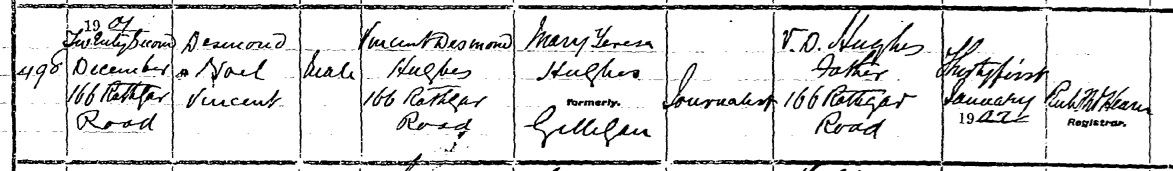 498
19 01
Twenty Second
December
166 Rathgar
Road
Desmond
Noel
Vincent
Male
Vincent Desmond
Hughes
166 Rathgar
Road
Mary Teresa
Hughes
formerly.
Gilligan
Journalist
V. D. Hughes
Father
166 Rathgar
Road
Thirty first
January
1902
Registrar.